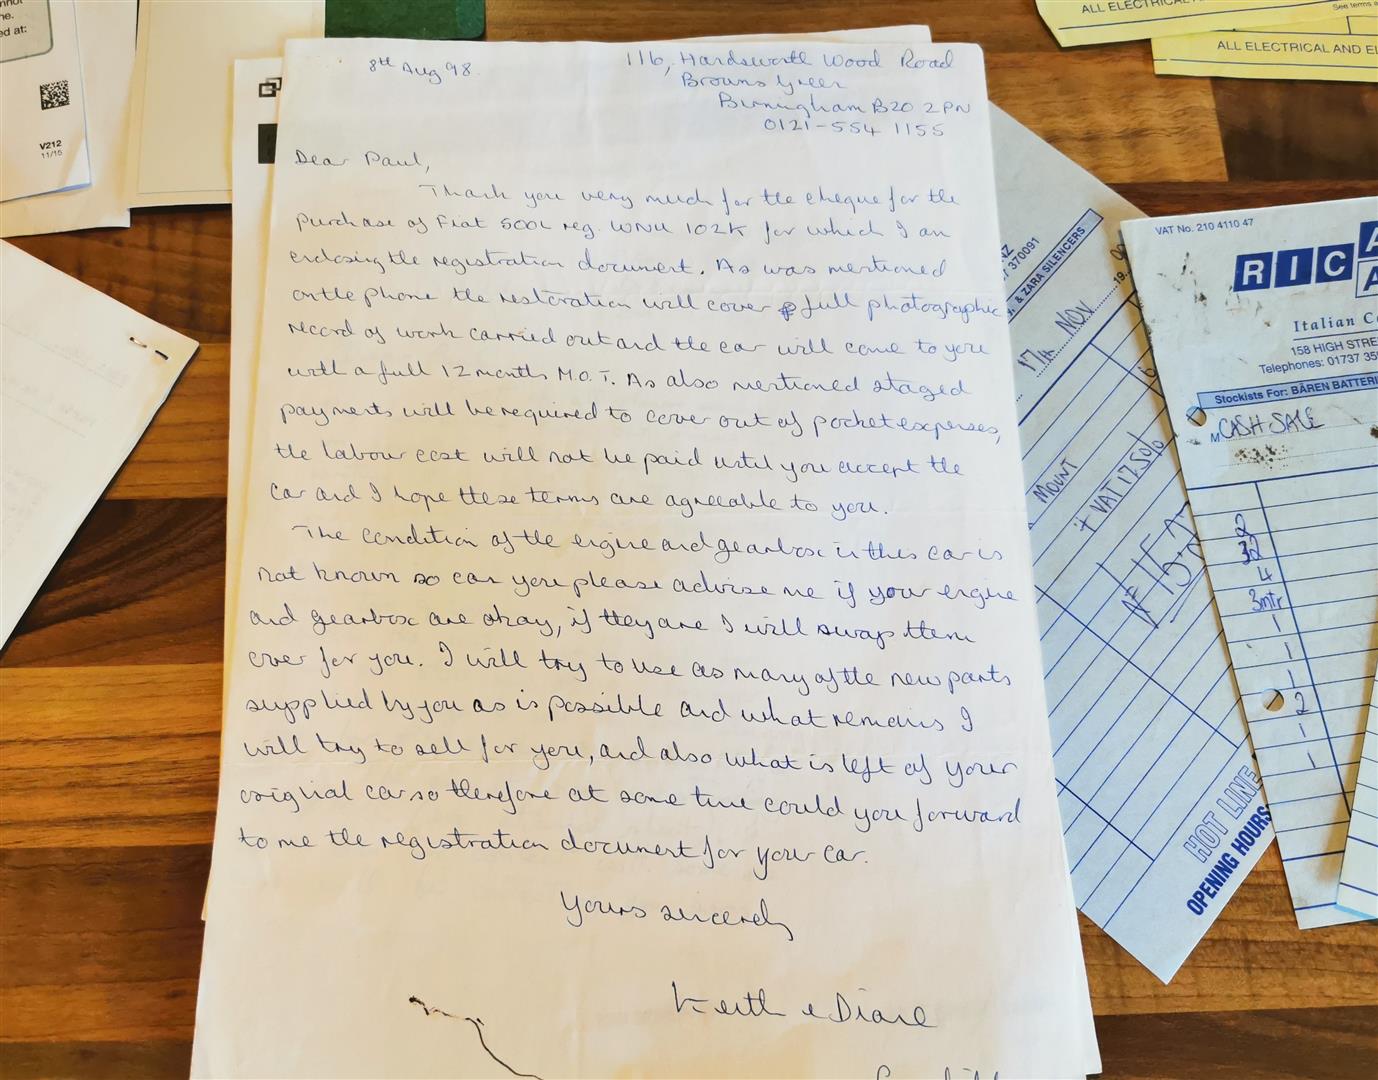 8th Aug 98
116, Handsworth Wood Road
Browns Green
Birmingham B20 2PN
0121-554 1155
Dear Paul,
Thank you very much for the cheque for the
purchase of Fiat 500L reg. WNU 102K for which I am
enclosing the registration document. As was mentioned
on the phone the restoration will cover full photographic
record of work carried out and the car will come to you
with a full 12 months M.O.T. As also mentioned staged
payments will be required to cover out of pocket expenses,
the labour cost will not be paid until you accept the
car and I hope these terms are agreeable to you.
The condition of the engine and gearbox in this car is
not known so can you please advise me if your engine
and gearbox are okay, if they are I will swap them
over for you. I will try to use as many of the new parts
supplied by you as is possible and what remains I
will try to sell for you, and also what is left of your
original car so therefore at some time could you forward
to me the registration document for your car.
Yours sincerely
Keith & Diane
ed at:
V212
11/15
ALL ELECTRICAL
See terms
ALL ELECTRICAL AND
370091
& ZARA SILENCERS
17th NOV
19
MOUNT
+ VAT 17.50%
HOT LINE
OPENING HOURS
VAT No. 210 4110 47
RIC
Italian
158 HIGH
Telephones: 01737
Stockists For: BÄREN
M CASH SALE
2
32
4
3mtr
1
1
1
2
1
1